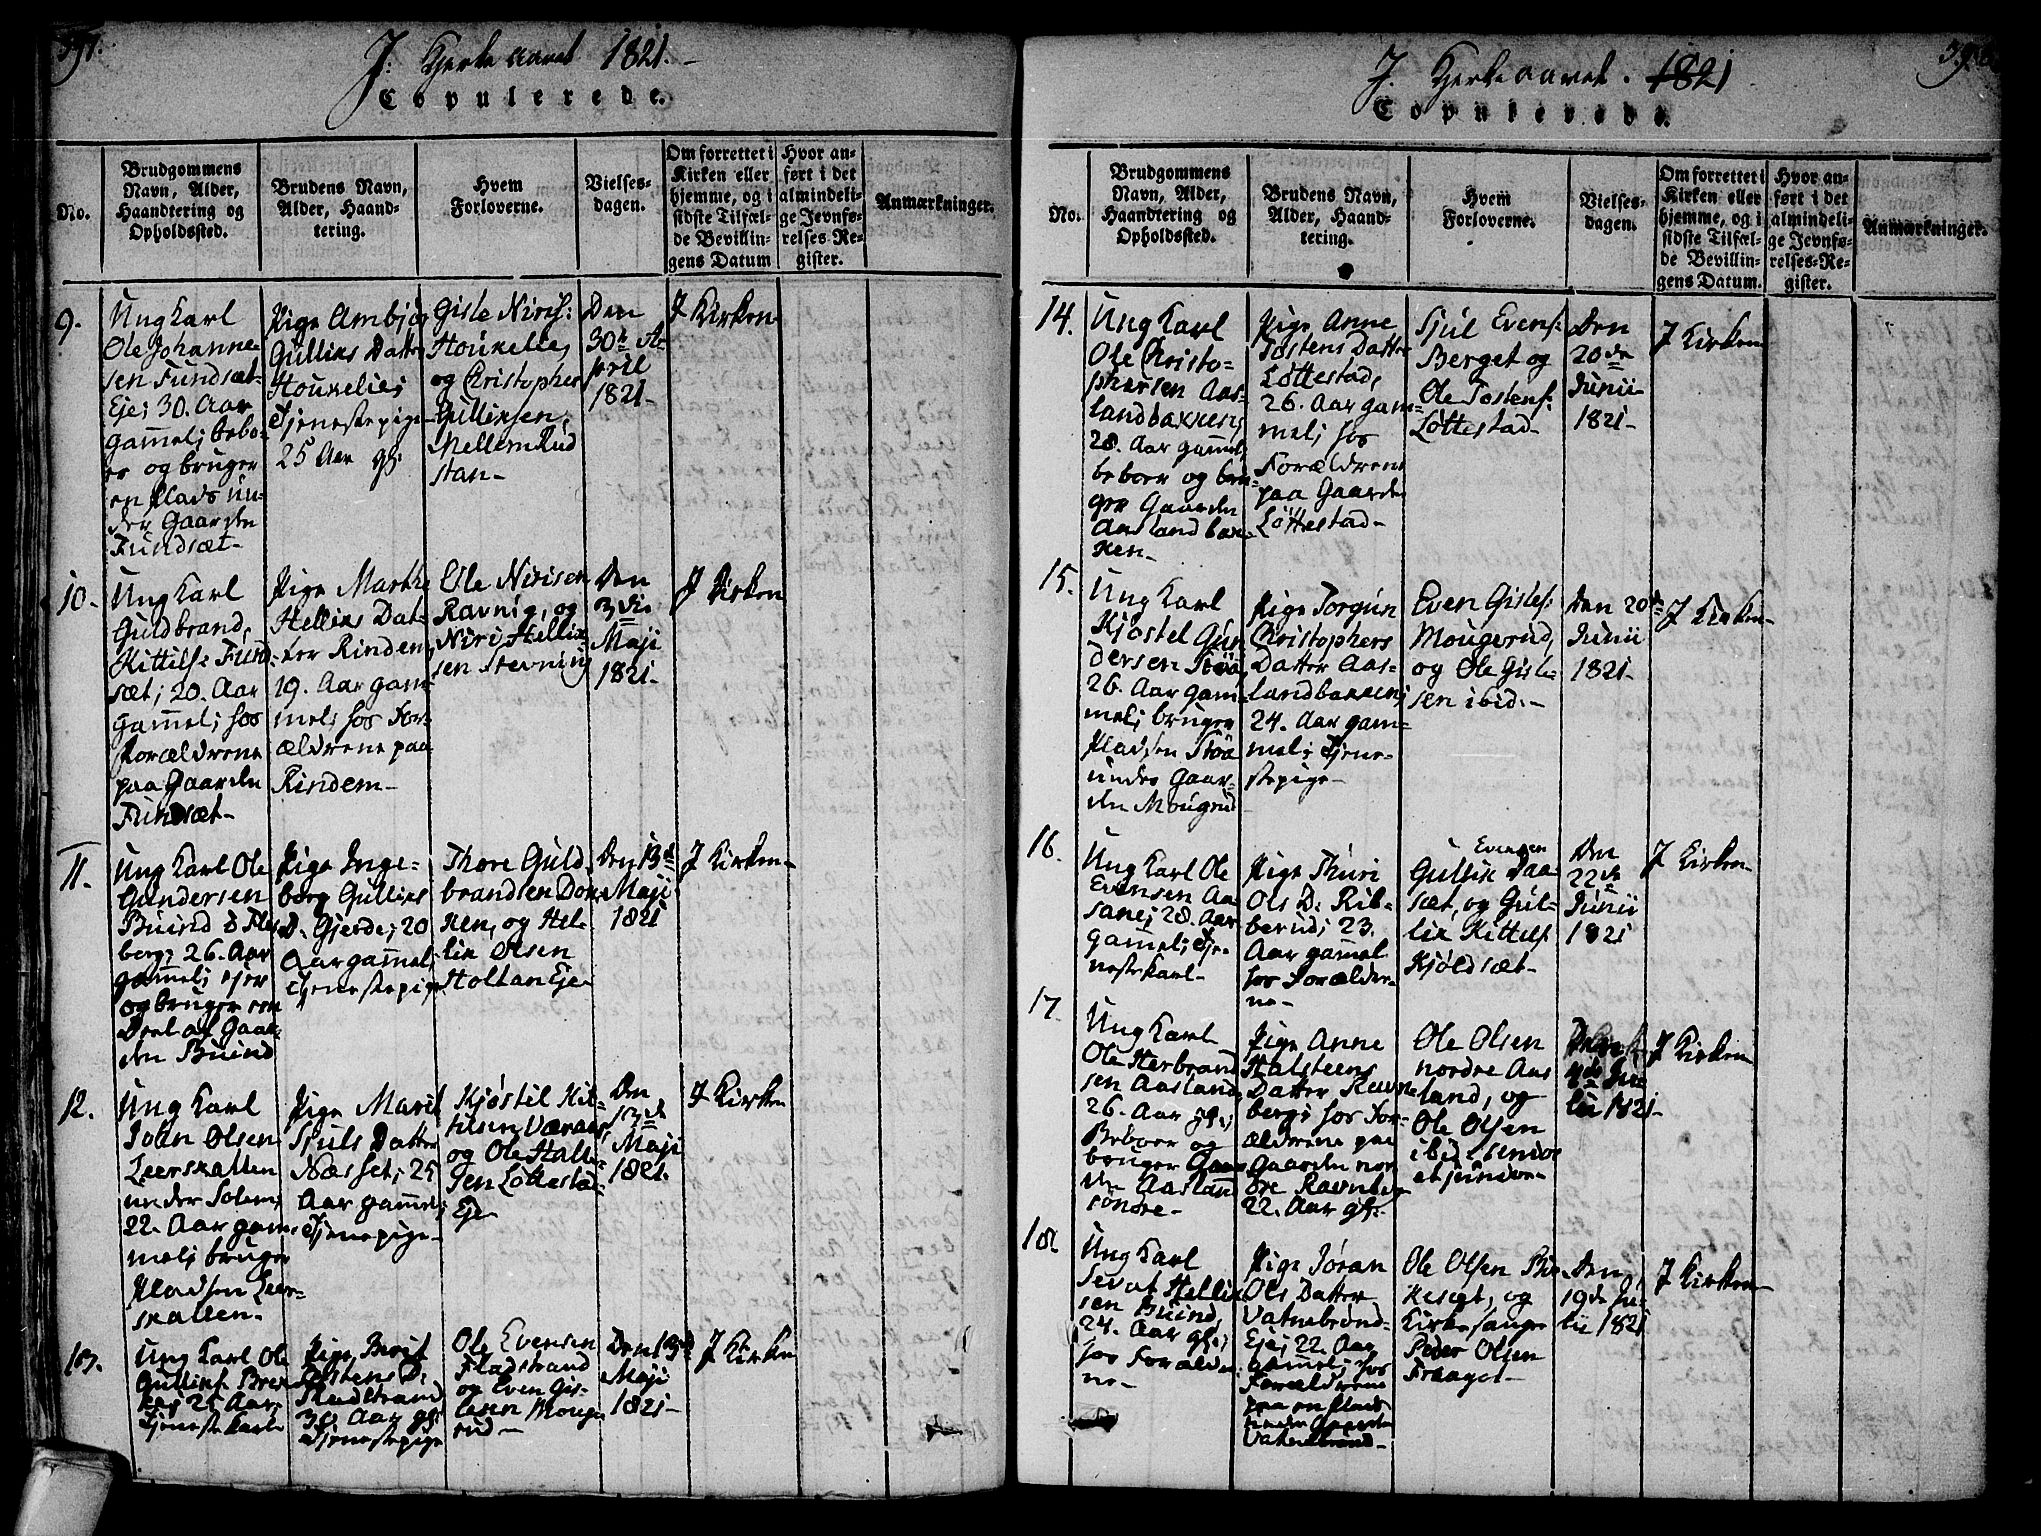 397.
J. Kjerke aaret 1821.-
Copulerede.
No.
Brudgommens
Navn, Alder,
Haandtering og
Opholdssted.
Brudens Navn,
Alder, Haand-
tering.
Hvem
Forloverne.
Vielses-
dagen.
Om forrettet i
Kirken eller
hjemme, og i
sidste Tilfæl-
de Bevillin-
gens Datum
Hvor an-
ført i det
almindeli-
ge Jevnfø-
relses-Re-
gister.
Anmærkninger.
9.
Ung Karl
Ole Johanne-
sen Fundsæt-
Eje; 30. Aar
gamel; bebo-
er og bruger
en Plads un-
der Gaarden
Fundsæt-
Pige Ambjør
Gulliks Datter
Houkelie;
Tjenestepige
25 Aar gl:
Gisle Niris:
Houkelie,
og Christopher
Gulliksen,
MellemRud
stan-
Den
30te A-
pril
1821-
J Kirken
10.
Ung Karl
Guldbrand,
Kittils: Fund
sæt; 20. Aar
gamel; hos
Forældrene
paa Gaarden
Fundsæt-
Pige Marthe
Helliks Dat-
ter Rinden,
19. Aar gam-
mel; hos For-
ældrene paa
Rindem-
Ole Nirisen
Ravnig, og
Niri Hellik
sen Stevning
Den
3die
Maji
1821-
J Kirken
11.
Ung Karl Ole
Gundersen
Buind å Fles
berg; 26. Aar
gamel; ejer
og bruger en
Deel af Gaar-
den Buind
Pige Inge-
borg Gulliks
D. Gjerde; 20
Aar gamel;
Tjenestepige
Thore Guld
brandsen Dok
ken, og Hel-
lik Olsen
Holtan Eje-
Den 13de
Maji
1821
J Kirken-
12.
Ung Karl
John Olsen
Leerskallen
under Solem;
22. Aar gam-
mel; bruger
Pladsen Leer-
skallen.
Pige Marit
Sjuls Datter
Næsset; 25
Aar gamel;
Tjenestepige-
Kjøstil Kit-
tilsen Væraas,
og Ole Halste-
sen Løttestad-
Eje-
Den
13de
Maji
1821.
J Kirken
13.
Ung Karl Ole
Gulliks: Brek
ke; 25 Aar;
Tjenestekarl
Pige Berit
Tostens D.
Fladstrand
30 Aar gl:
Tjenestepige
Ole Evensen
Fladstrand
og Even Gis-
lesen Mouge-
rud-
Den 13de
Maji
1821-
J Kirken
398
J. Kjerke aaret. 1821
Copulerede.
No.
Brudgommens
Navn, Alder,
Haandtering og
Opholdssted.
Brudens Navn,
Alder, Haand-
tering.
Hvem
Forloverne.
Vielses-
dagen.
Om forrettet i
Kirken eller
hjemme, og i
sidste Tilfæl-
de Bevillin-
gens Datum.
Hvor an-
ført i det
almindeli-
ge Jevnfø-
relses-Re-
gister.
Anmærkninger.
14.
Ung Karl
Ole Christo-
phersen Aas-
landbakken;
28. Aar gamel;
beboer og bru-
ger Gaarden
Aaslandbak-
ken-
Pige Anne
Tostens Datter
Løttestad,
26. Aar gam-
mel; hos
Forældrene
paa Gaarden
Løttestad-
Sjul Evens:
Berget og
Ole Tostens:
Løttestad-
Den
20de
Junii
1821-
J Kirken
15.
Ung Karl
Kjøstel Gun
dersen Stöa,
26. Aar gam-
mel; bruger
Pladsen Stöa
under Gaar-
den Mougrud
Pige Torgun
Christophers
Datter Aas-
landbakken;
24. Aar gam-
mel; Tjene-
stepige-
Even Gisles:
Mougerud,
og Ole Gisle-
sen ibid.-
Den 20de
Junii
1821-
J Kirken-
16.
Ung Karl Ole
Evensen Aa-
sane; 28. Aar
gamel; Tje-
nestekarl-
Pige Thuri
Ols D. Rib-
berud; 23.
Aar gamel
hos Forælder-
ne-
Evensen
Gullik Daa-
sæt, og Gul-
lik Kittils:
Kjøldsæt-
Den
22de
Junii
1821
J Kirken-
17.
Ung Karl
Ole Herbrand
sen Aasland,
26. Aar gl;
Beboer og
bruger Gaar
den Aasland
söndre-
Pige Anne
Halsteens
Datter Ravne
berg; hos For-
ældrene paa
Gaarden nor
dre Ravneberg
22. Aar gl:
Ole Olsen
nordre Aas
land, og
Ole Olsen
ibid:
Den
Ju-
lii 1821-
J Kirken
18.
Ung Karl
Sevat Hellik
sen Buind,
24. Aar gl;
hos Forældre
ne-
Pige Jøran
Ols Datter
Vatnebrønd-
Eje; 22. Aar
gamel; hos
Forældrene
paa en Plads
under Gaarden
Vatnebrønd-
Ole Olsen Bir-
keset, og
Kirkesanger
Peder Olsen
Fraaget-
Den
19de Ju-
lii 1821
J Kirken-